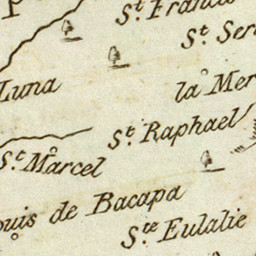 St. Franc
St. Ser
Luna
la Mer
St. Raphael
St. Marcel
ouis de Bacapa
Ste. Eulalie